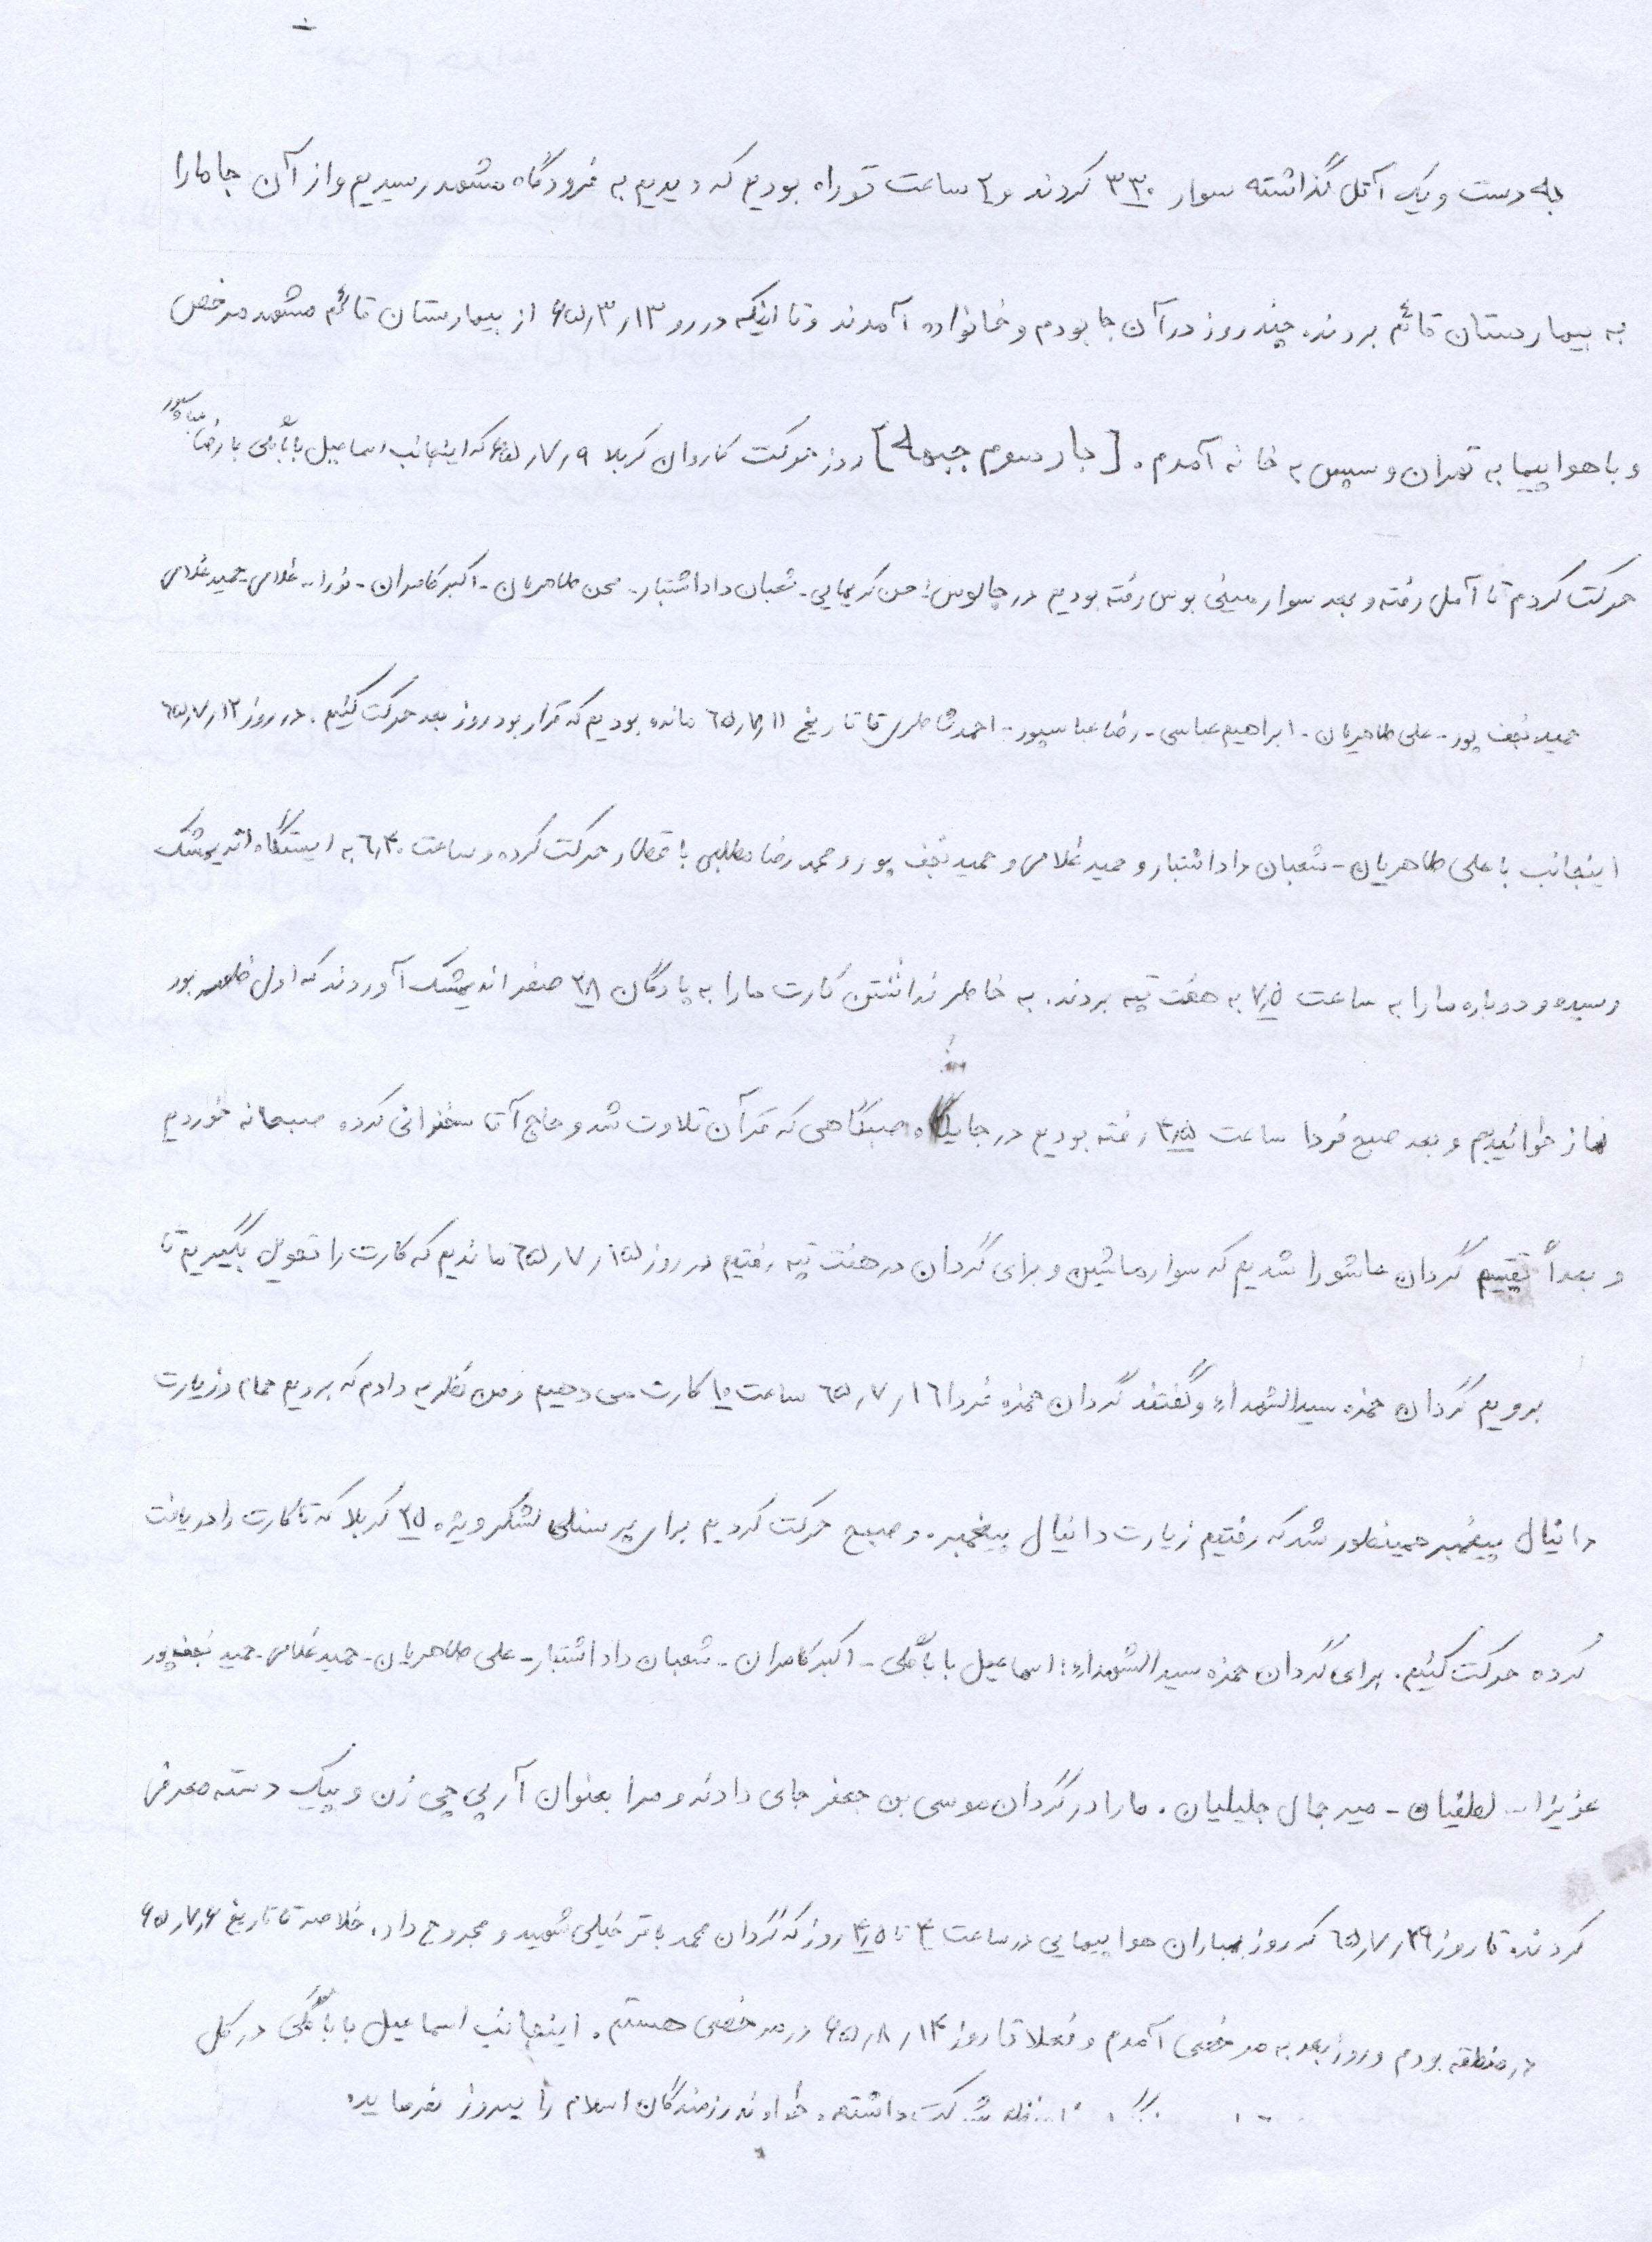 به دست و یک آتل گذاشته سوار ۳۳۰ کردند و ۲ ساعت تو راه بودیم که دیدیم به فرودگاه مشهد رسیدیم و از آن جا ما را
به بیمارستان قائم بردند. چند روز در آن جا بودم و خانواده آمدند و تا اینکه در رو ۶۵٫۳٫۱۳ از بیمارستان قائم مشهد مرخص
و با هواپیما به تهران و سپس به خانه آمدم. [بار سوم جبهه] روز حرکت کاروان کربلا ۶۵٫۷٫۹ که اینجانب اسماعیل باباگلی با رضا عباسپور
حرکت کردم تا آمل رفته و بعد سوار مینی بوس رفته بودیم در چالوس: حسن کریمایی - شعبان داداشتبار - محسن طاهریان - اکبر کامران - نورا... غلامی - حمید غلامی
حمید نجف پور - علی طاهریان - ابراهیم عباسی - رضا عباسپور - احمد شاطری تا تاریخ ٦٥٫٧٫١١ مانده بودیم که قرار بود روز بعد حرکت کنیم. در روز ٦٥٫٧٫١٢
اینجانب با علی طاهریان - شعبان داداشتبار و حمید غلامی و حمید نجف پور و محمد رضا مطلبی با قطار حرکت کرده و ساعت ٦٫٣٠ به ایستگاه اندیمشک
رسیده و دوباره ما را به ساعت ۷٫۵ به هفت تپه بردند. به خاطر نداشتن کارت ما را به پادگان ۲۸ صفر اندیمشک آوردند که اول ظهر بود
نماز خواندیم و بعد صبح فردا ساعت ۴٫۵ رفته بودیم در جایگاه صبگاهی که قرآن تلاوت شد و حاج آقا سخنرانی کرده صبحانه خوردیم
و بعداً تقسیم گردان عاشورا شدیم که سوار ماشین و برای گردان در هفت تپه رفتیم در روز ٦٥٫٧٫١٥ ماندیم که کارت را تحویل بگیریم تا
برویم گردان حمزه سیدالشهداء و گفتند گردان حمزه فردا ٦٥٫٧٫١٦ ساعت ۱۰ کارت می دهیم و من نظریه دادم که برویم حمام و زیارت
دانیال پیغمبر همینطور شد که رفتیم زیارت دانیال پیغمبر. و صبح حرکت کردیم برای پرسنلی لشکر ویژه ۲۵ کربلا که تا کارت را دریافت
کرده حرکت کنیم. برای گردان حمزه سیدالشهداء: اسماعیل باباگلی - اکبر کامران - شعبان داداشتبار - علی طاهریان - حمید غلامی - حمید نجف پور
عزیزا... لطفیان - میر جمال جلیلیان. ما را در گردان موسی بن جعفر جای دادند و مرا بعنوان آر پی چی زن و پیک دسته معرفی
کردند تا روز ٦٥٫٧٫٢٩ که روز بمباران هواپیمایی در ساعت ۴ تا ۴٫۵ روز که گردان محمد باقر خیلی شهید و مجروح داد، خلاصه تا تاریخ ۶۵٫۷٫۶
در منطقه بودم و روز بعد به مرخصی آمدم و فعلا تا روز ۶۵٫۸٫۱۴ در مرخصی هستم. اینجانب اسماعیل باباگلی در کل
شرکت داشته. خداوند رزمندگان اسلام را پیروز بفرماید.